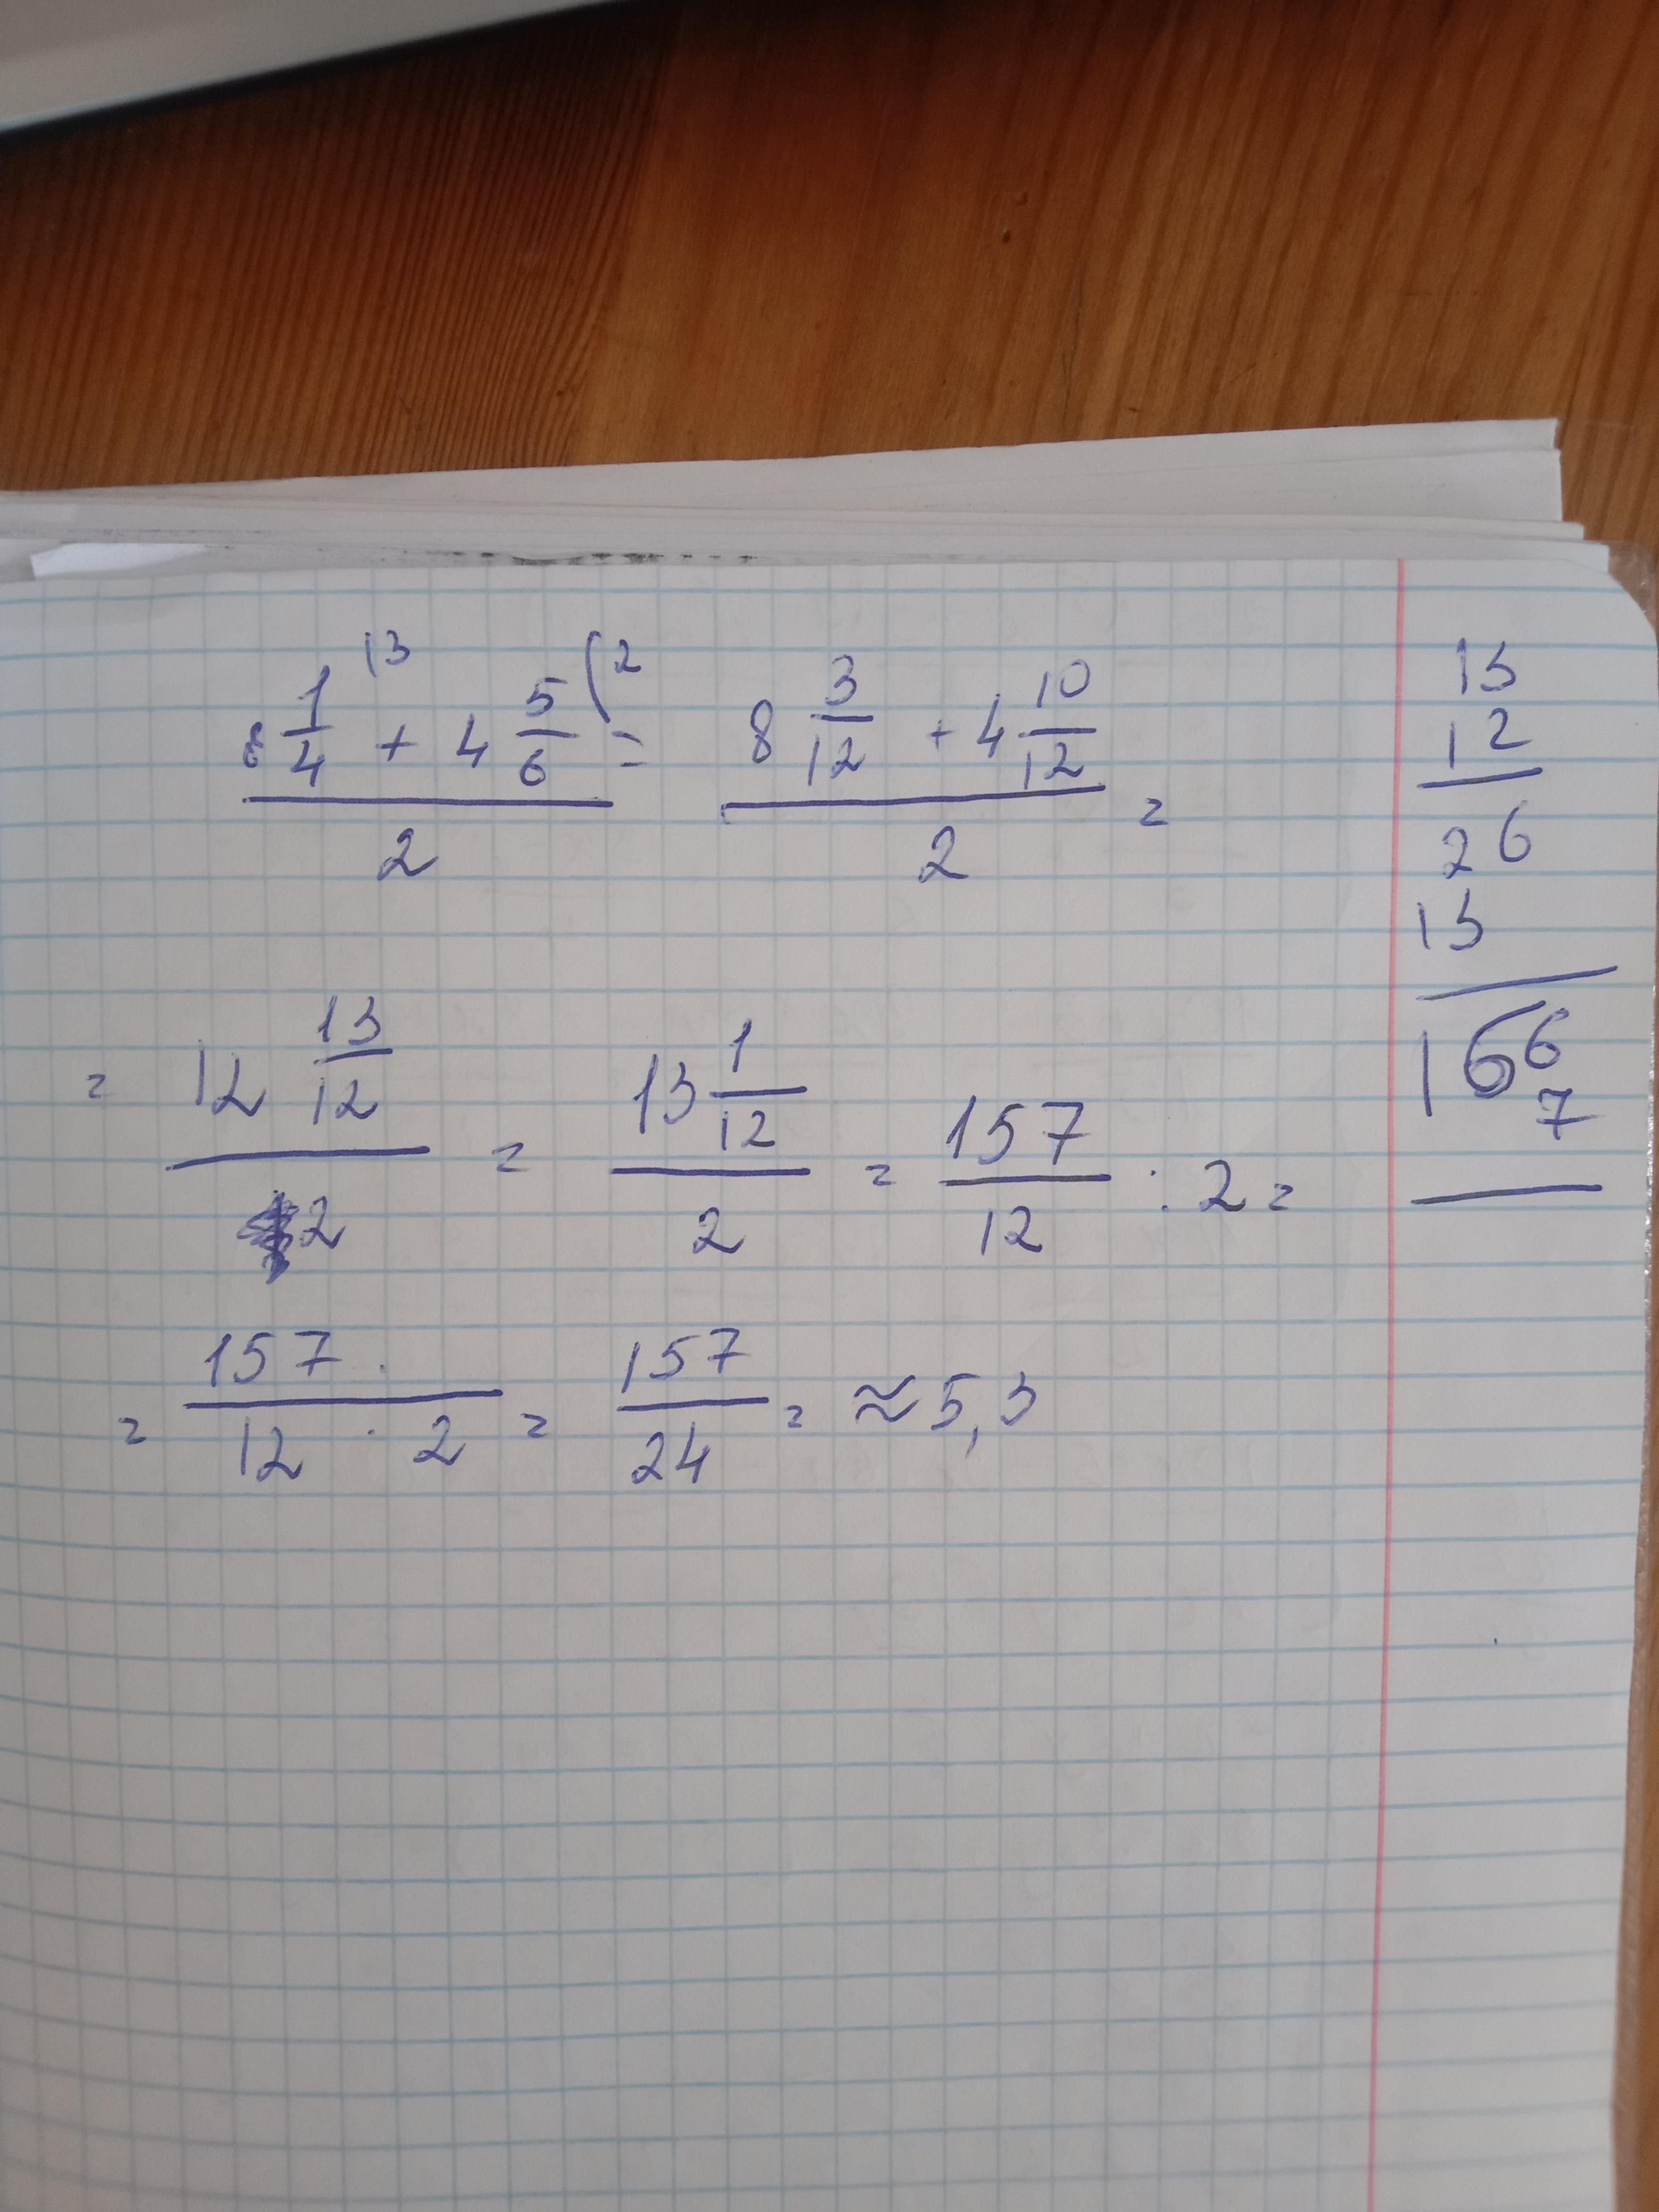 (8 1/4 |3 + 4 5/6 (2) / 2 = (8 3/12 + 4 10/12) / 2 =
= (12 13/12) / 2 = (13 1/12) / 2 = 157/12 : 2 =
= 157 · / 12 · 2 = 157/24 = ≈ 5,3
13
12
26
13
166
7